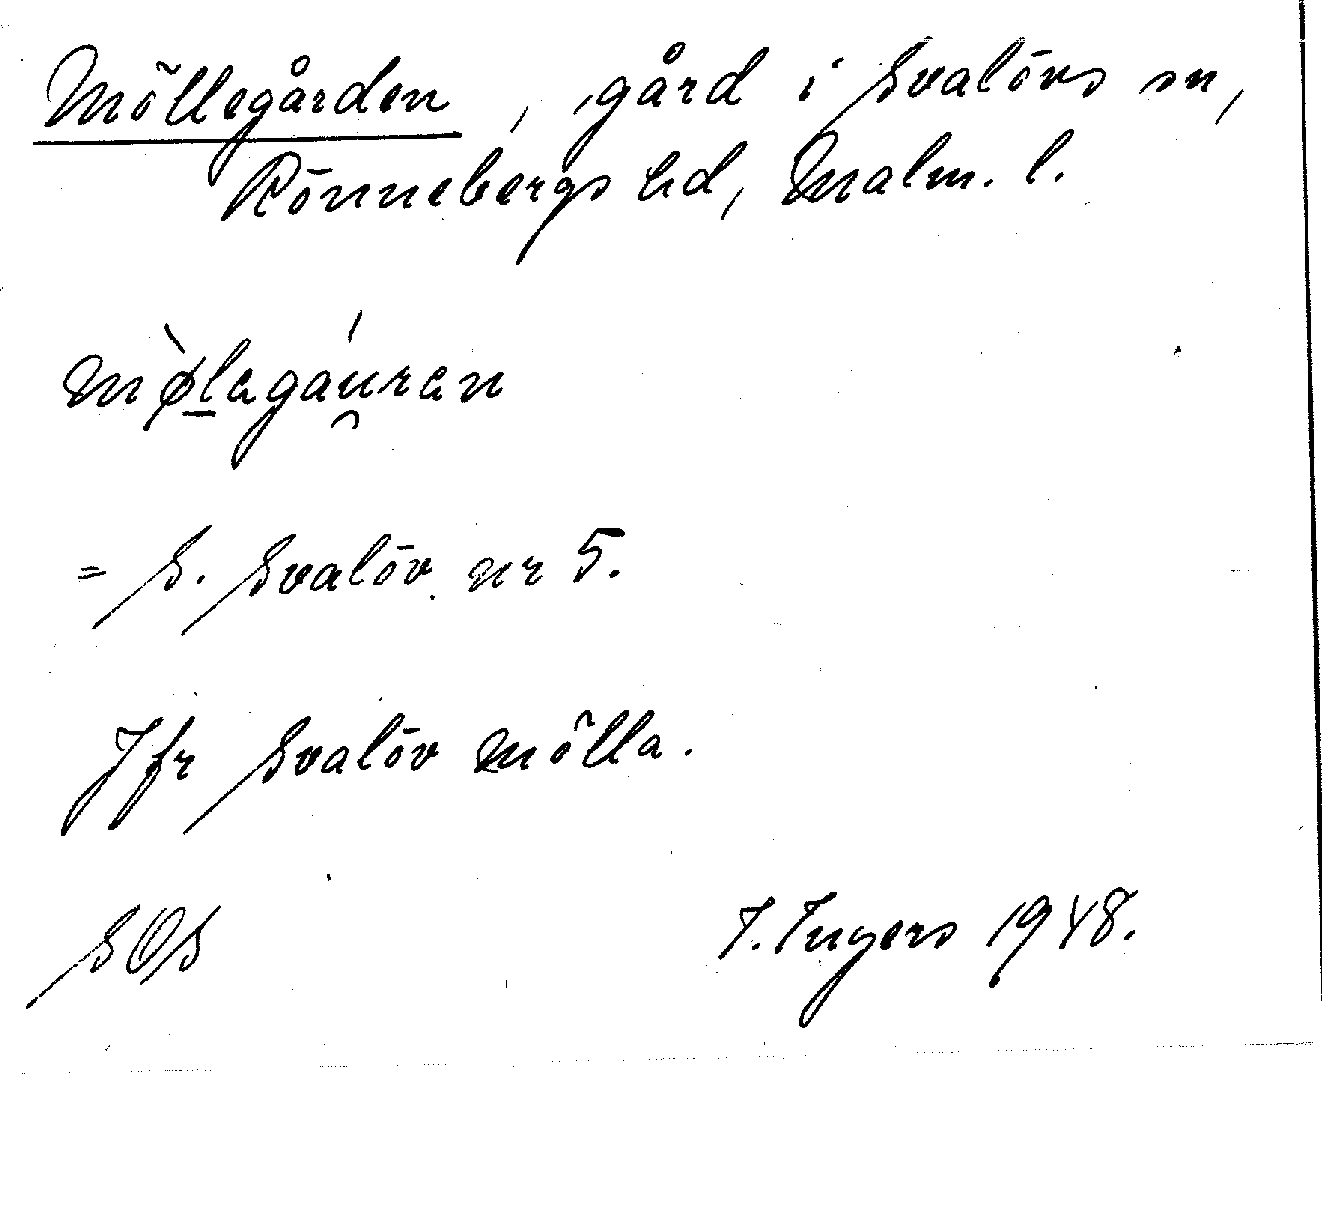 Möllegården, gård i Svalövs sn,
Rönnebergs hd, Malm. l.
mø̀lagáu̯ran
= S. Svalöv nr 5.
Jfr Svalöv mölla.
SOS I. Ingers 1948.